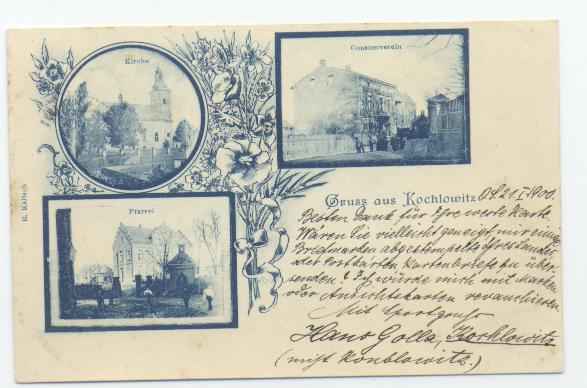 Kirche
Consumverein
Pfarrei
Gruss aus Kochlowitz OS 21/I 1900.
Besten Dank für Ihre werte Karte.
Wären Sie vielleicht geneigt mir einige
Briefmarken abgestempelte Ihres Landes
oder Postkarten Kartenbriefe zu über-
senden? Ich würde mich mit Marken
oder Ansichtskarten revanchieren.
Mit Sportgruß
Hans Golla, Kochlowitz
(nicht Konblowitz.)